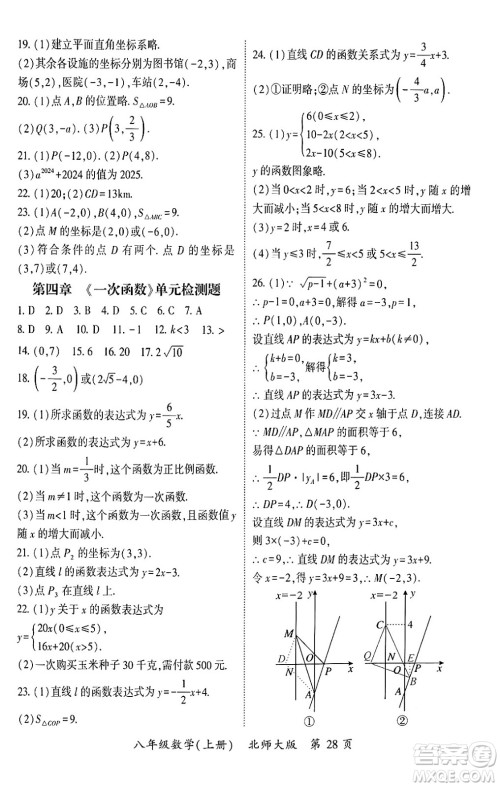 19. (1)建立平面直角坐标系略.
(2)其余各设施的坐标分别为图书馆(-2,3),商
场(5,2),医院(-1,-3),车站(2,-2).
20. (1)点A,B的位置略.S△AOB=9.
(2)Q(3,-a).(3)P(3,2/3)
21. (1)P(-12,0).(2)P(-3,3).
(3)a²⁰²⁴+2024的值为2025.
22. (1)20;(2)CD=13km.
23. (1)A(-2,0),B(4,0),S△ABC=9.
(2)点M的坐标为(0,-2)或(0,2).
(3)符合条件的点D有两个.点D的坐标为
(3,7)或(7,4).
第四章 《一次函数》单元检测题
1. D 2. D 3. C 4. B 5. B 6. B 7. B
8. D 9. A 10. D 11. -1 12. k<3 13. >
14. (0,7) 15. 6 16. 20 17. 2√10
18. (-3/2,0)或(2√5-4,0)
19. (1)所求函数的表达式为y=6/5x.
(2)所求函数的表达式为y=x+6.
20. (1)当m=1/3时,这个函数为正比例函数.
(2)当m≠1时,这个函数为一次函数.
(3)当m<1时,这个函数为一次函数.
21. (1)点P₂的坐标为(3,3).
(2)直线l的函数表达式为y=2x-3.
(3)点P₃在直线l上.
22. (1)y关于x的函数表达式为
y={20x(0≤x≤5),
16x+20(x>5).
(2)一次购买玉米种子30千克,需付款500元.
23. (1)直线l的函数表达式为y=-1/2x+4.
(2)S△COP=9.
24. (1)直线CD的函数关系式为y=3/4x+3.
(2)①证明略;②点N的坐标为(-4/3a,a).
25. (1)y={6(0≤x≤2),
10-2x(2<x<5),
2x-10(5<x<8).
y的函数图象略.
(2)当0<x<2时,y=6;当2<x<5时,y随x的增
大而减小;当5<x<8时,y随x的增大而增大.
(3)y=2或y=4.
(4)1≤x≤3或x=7.
26. (1)∵√(p-1)+(a+3)²=0
∴p-1=0,a+3=0,∴p=1,a=-3,
∴P(1,0),A(0,-3),
设直线AP的表达式为y=kx+b(k≠0)
∴{k+b=0,
b=-3,解得{k=3,
b=-3,
∴直线AP的表达式为y=3x-3.
(2)过点M作MD//AP交x轴于点D,连接AD,
∵MD//AP,△MAP的面积等于6,
易得△DAP的面积等于6,
∴1/2DP·|yA|=6,即1/2×3DP=6
∴DP=4,∴D(-3,0)
设直线DM的表达式为y=3x+c
则3×(-3)+c=0,
∴c=9,∴直线DM的表达式为y=3x+9.
令x=-2,得y=3,∴M(-2,3).
x=-2 y M D O P N A x ①
x=-2 y C 4 Q O P E B A x ②
八年级数学(上册) 北师大版 第28页